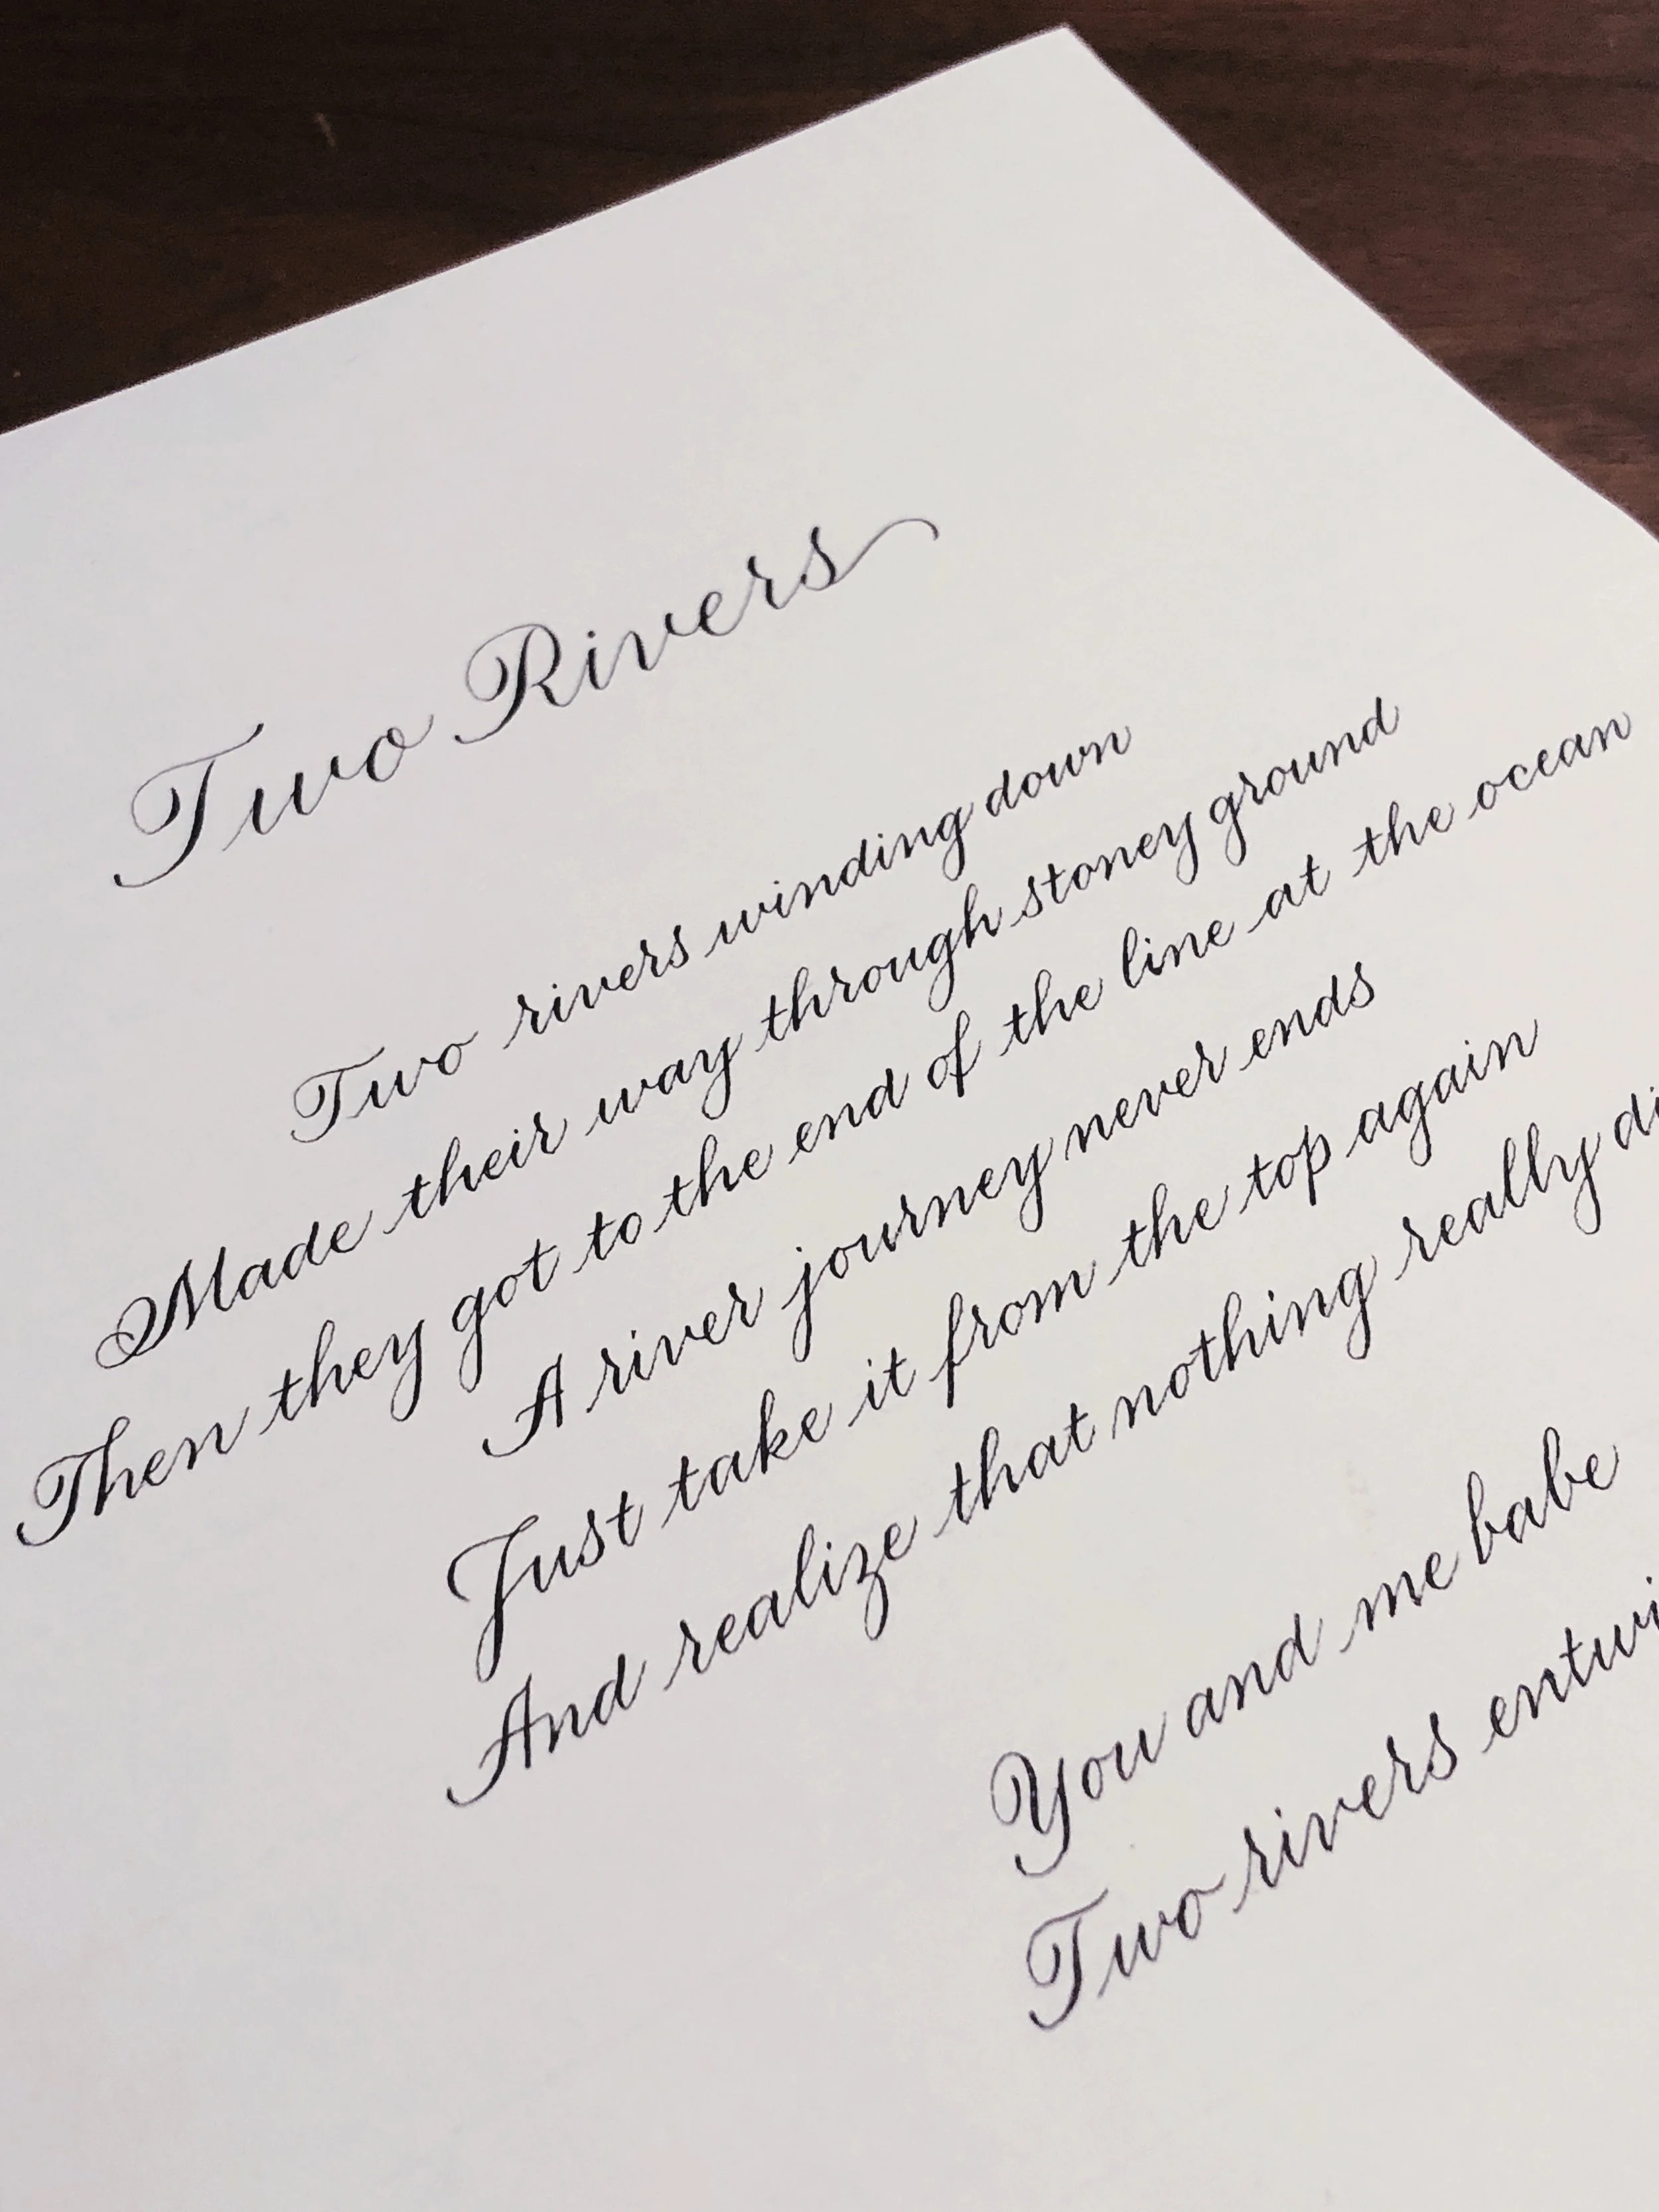 Two Rivers
Two rivers winding down
Made their way through stoney ground
Then they got to the end of the line at the ocean
A river journey never ends
Just take it from the top again
And realize that nothing really di
You and me babe
Two rivers entwi